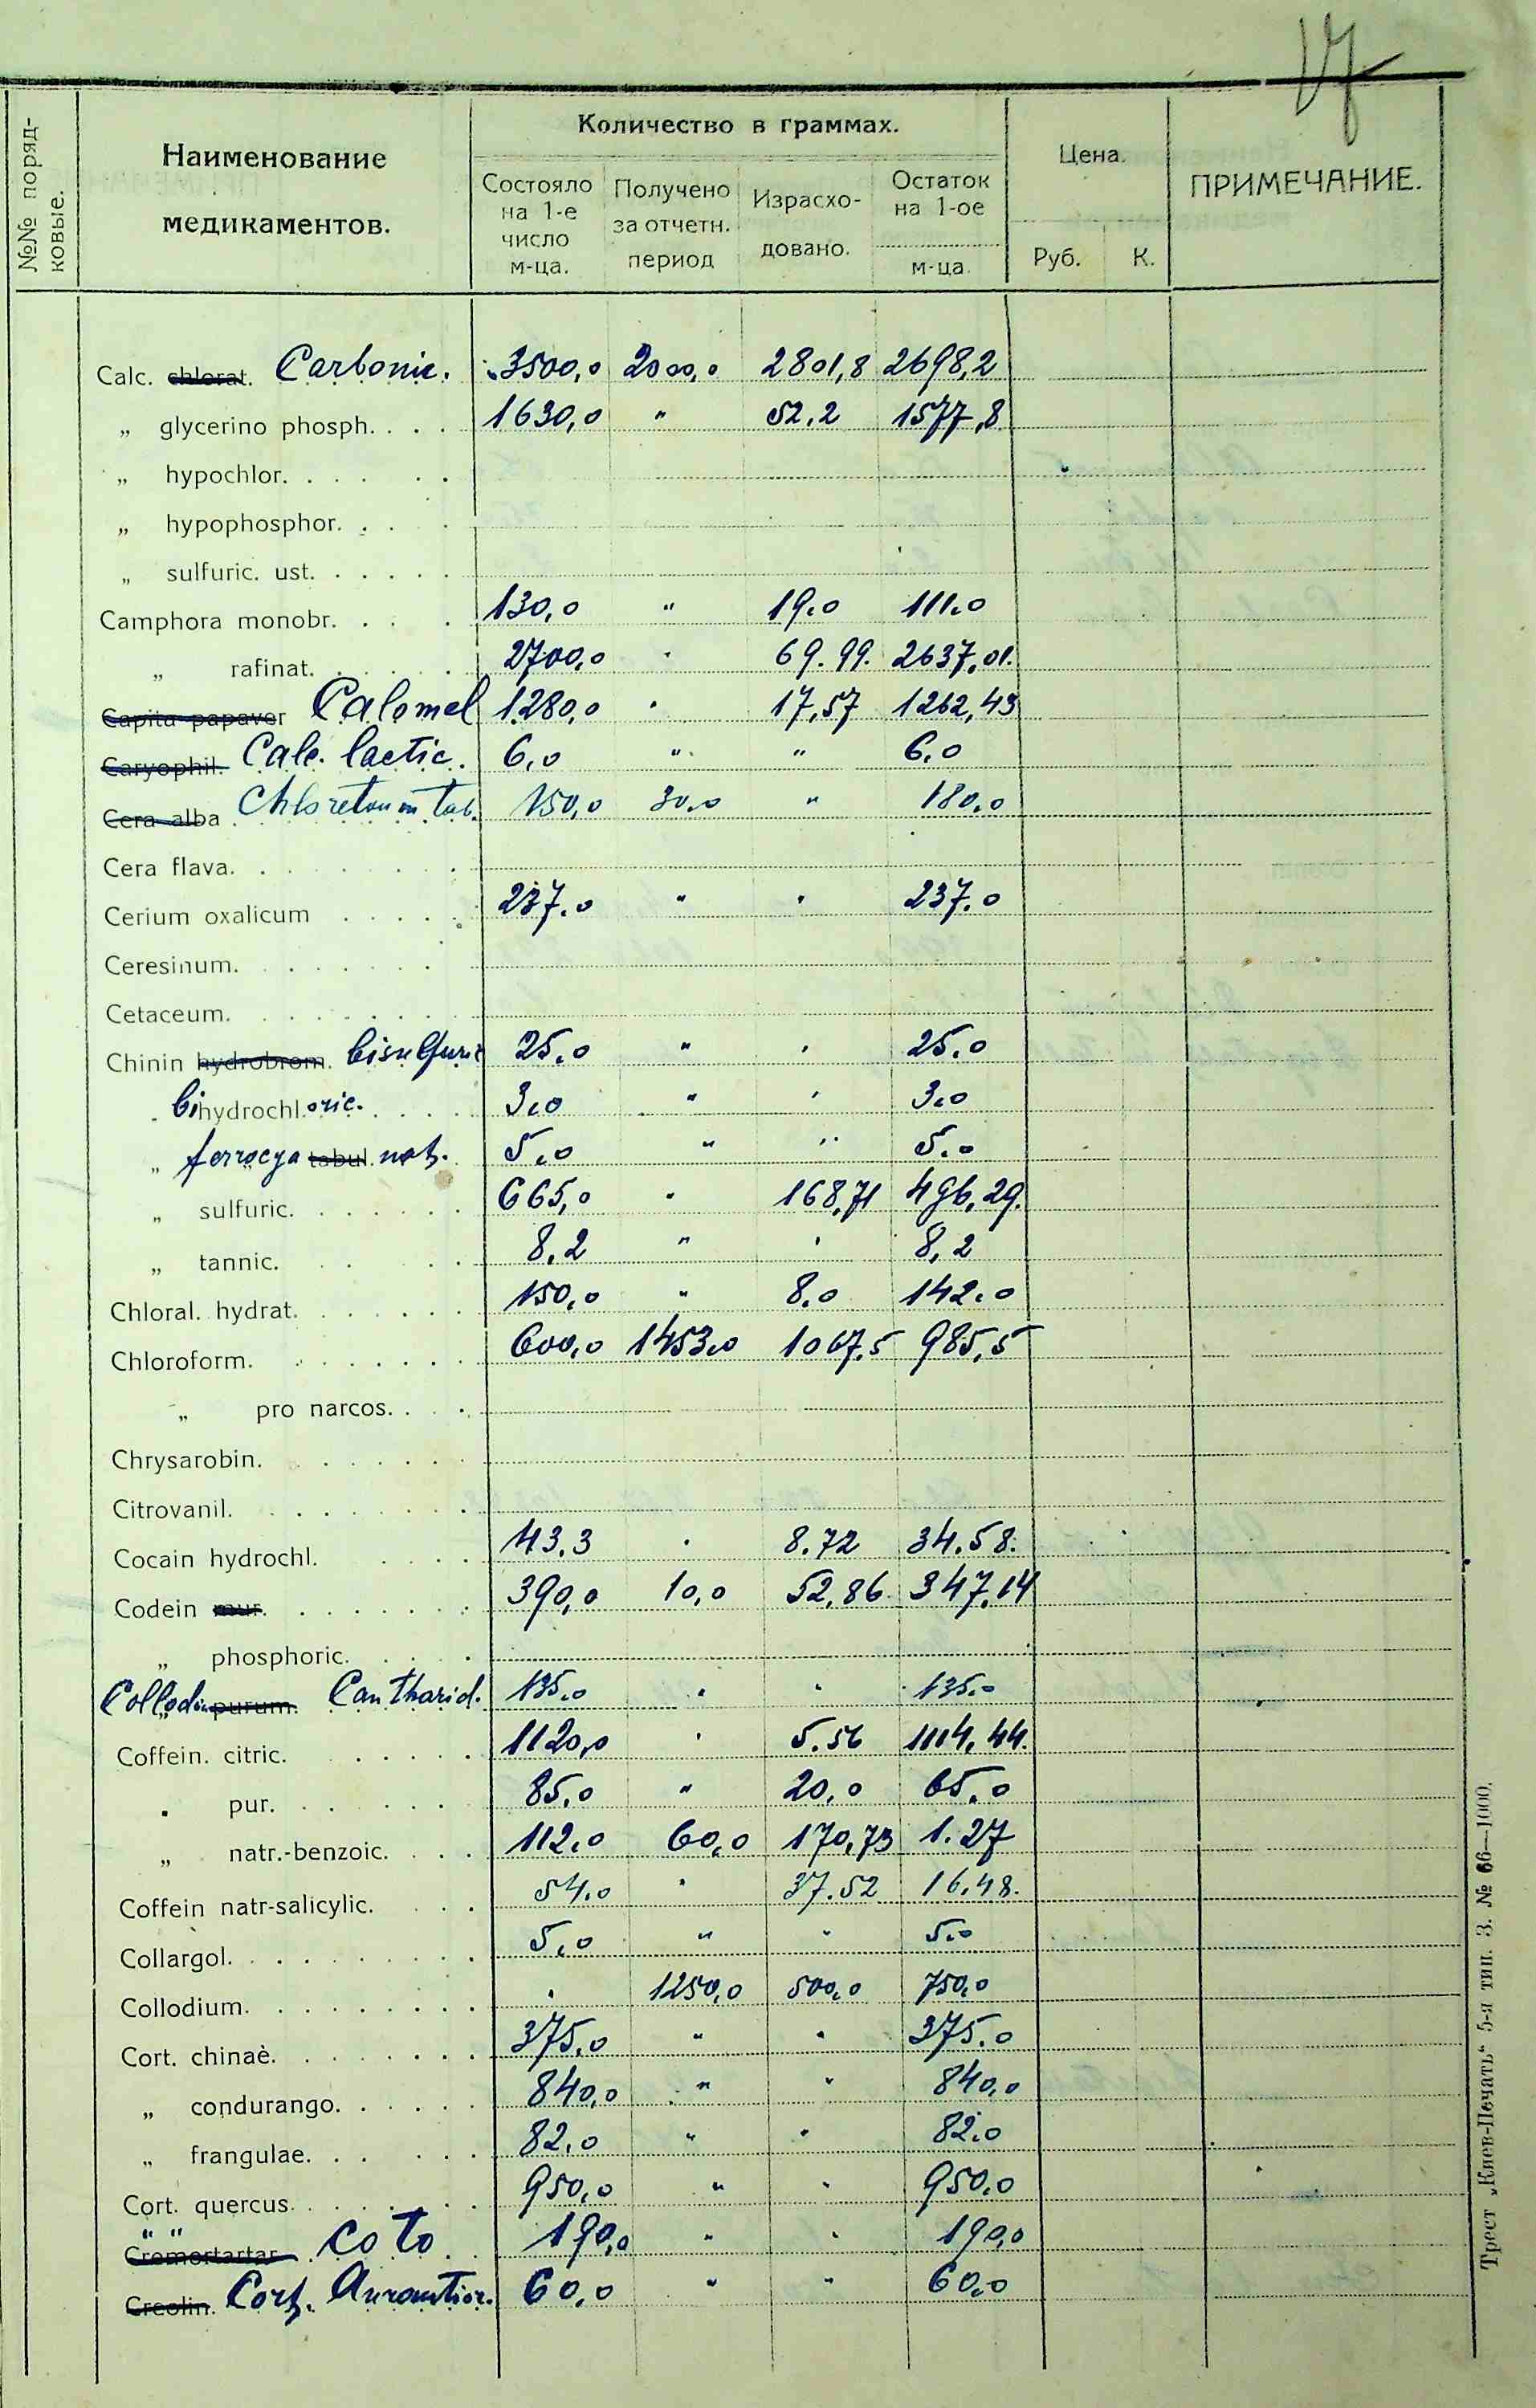 17
№№ поряд-
ковые.
Наименование
медикаментов.
Количество в граммах.
Состояло
на 1-е
число
м-ца.
Получено
за отчетн.
период
Израсхо-
довано.
Остаток
на 1-ое
м-ца.
Цена.
Руб. К.
ПРИМЕЧАНИЕ.
Calc. chlorat. Carbonic. 3500,0 2000,0 2801,8 2698,2
„ glycerino phosph. 1630,0 " 52,2 1577,8
„ hypochlor.
„ hypophosphor.
„ sulfuric. ust.
Camphora monobr. 130,0 " 19.0 111.0
„ rafinat. 2700,0 " 69.99. 2637,01.
Capita papaver Calomel 1280,0 " 17,57 1262,43
Caryophil. Calc. lactic. 6,0 " " 6,0
Cera alba Chloretonum tab. 150,0 30,0 " 180,0
Cera flava.
Cerium oxalicum 237.0 " " 237.0
Ceresinum.
Cetaceum.
Chinin hydrobrom. bisulfuric 25.0 " " 25.0
„ bihydrochl.oric. 3,0 " " 3,0
„ ferrocya tabul. nat. 5,0 " " 5,0
„ sulfuric. 665,0 " 168,71 496,29.
„ tannic. 8,2 " " 8,2
Chloral. hydrat. 150,0 " 8.0 142.0
Chloroform. 600,0 1453,0 1067,5 985,5
„ pro narcos.
Chrysarobin.
Citrovanil.
Cocain hydrochl. 43.3 " 8.72 34.58.
Codein mur. 390,0 10,0 52,86 347,14
„ phosphoric.
Collodi „ purum. Cantharid. 135.0 " " 135.0
Coffein. citric. 1120,0 " 5.56 1114,44.
„ pur. 85.0 " 20,0 65.0
„ natr.-benzoic. 112.0 60,0 170,73 1.27
Coffein natr-salicylic. 54.0 " 37.52 16,48.
Collargol. 5,0 " " 5,0
Collodium. " 1250,0 500,0 750,0
Cort. chinaè. 375.0 " " 375.0
„ condurango. 840,0 " " 840,0
„ frangulae. 82.0 " " 82.0
Cort. quercus. 950,0 " " 950,0
" " Cremortartar Coto 190,0 " " 190,0
Creolin. Cort. Aurantior. 60,0 " " 60,0
Трест „Киев-Печать“ 5-я тип. З. № 66—1000.